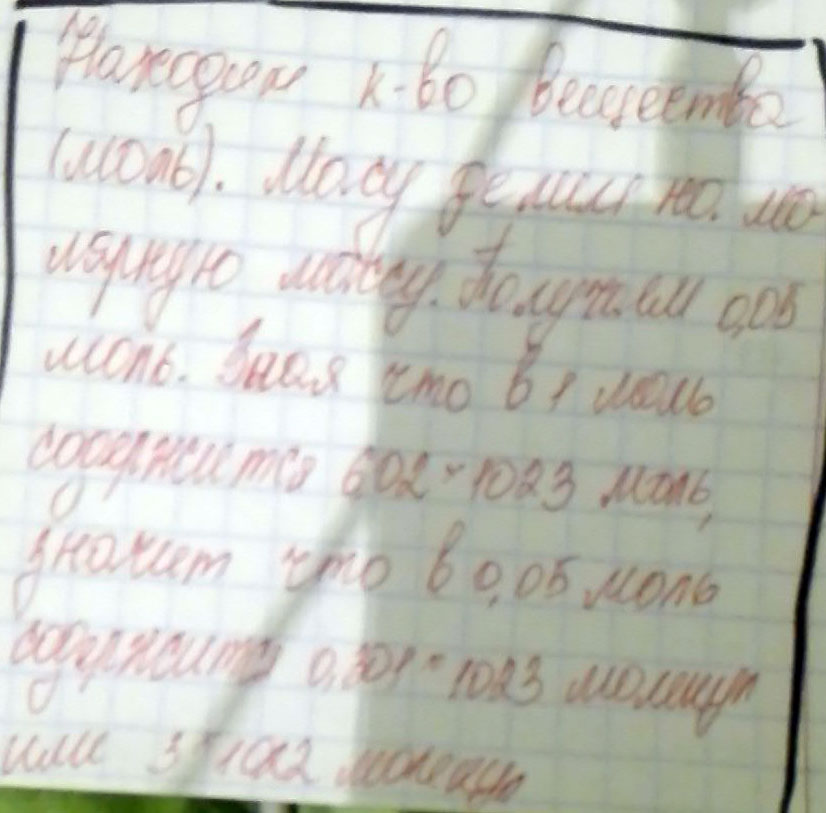 Находим к-во вещества
(моль). Масу делим на мо-
лярную массу. Получаем 0,05
моль. Зная что в 1 моль
содержится 6,02*1023 моль,
значит что в 0,05 моль
содержится 0,301*1023 молекул
или 3*1022 молекул